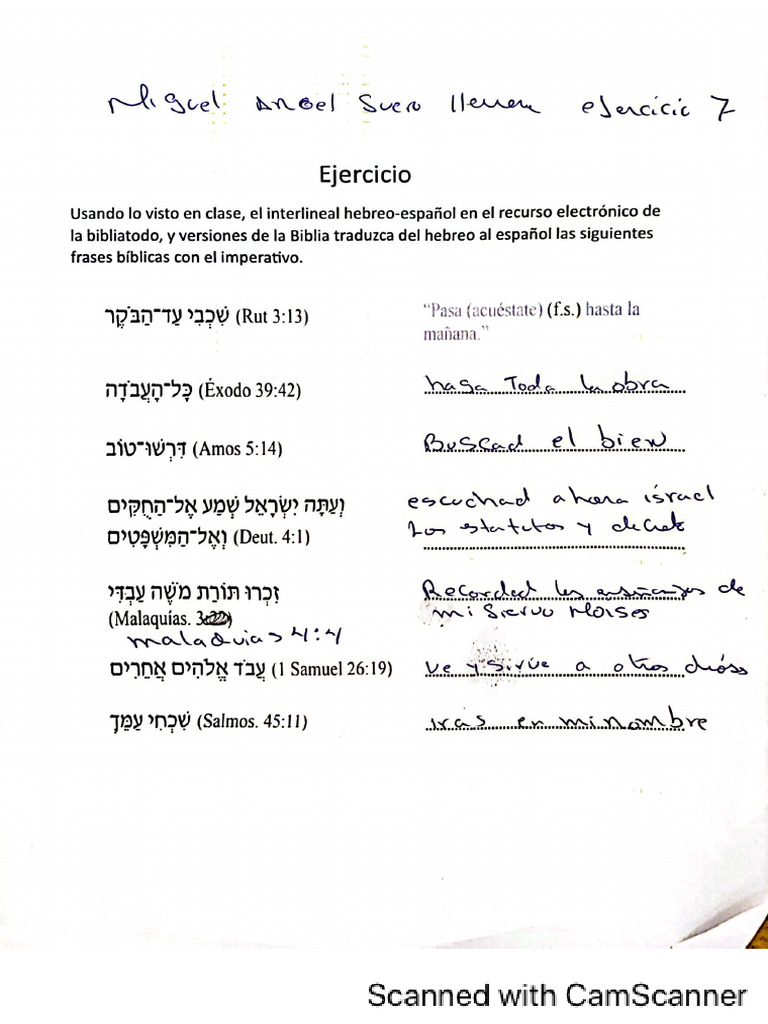 Miguel Angel Suero Llerena ejercicio 7
Ejercicio
Usando lo visto en clase, el interlineal hebreo-español en el recurso electrónico de
la bibliatodo, y versiones de la Biblia traduzca del hebreo al español las siguientes
frases bíblicas con el imperativo.
שִׁכְבִי עַד־הַבֹּקֶר (Rut 3:13) “Pasa (acuéstate) (f.s.) hasta la
mañana.”
כָּל־הָעֲבֹדָה (Éxodo 39:42) haga Toda la obra
דִּרְשׁוּ־טוֹב (Amos 5:14) Buscad el bien
וְעַתָּה יִשְׂרָאֵל שְׁמַע אֶל־הַחֻקִּים escuchad ahora israel
וְאֶל־הַמִּשְׁפָּטִים (Deut. 4:1) Los estatutos y decret
זִכְרוּ תּוֹרַת מֹשֶׁה עַבְדִּי Recordad las enseñanzas de
(Malaquías. 3:22) mi Siervo Moises
malaquias 4:4
עֲבֹד אֱלֹהִים אֲחֵרִים (1 Samuel 26:19) ve y sirve a otros dioses
שִׁכְחִי עַמֵּךְ (Salmos. 45:11) iras en mi nombre
Scanned with CamScanner